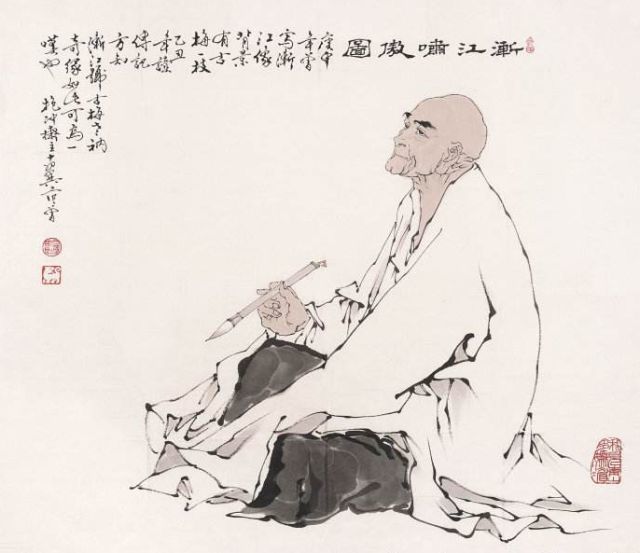 漸江嘯傲圖
庚申
年嘗
寫漸
江像
背景
有古
梅一枝
乙丑
年讀
傳記
方知
漸江號古梅老衲
奇緣如此可為一
嘆也 抱沖齋主十翼范曾